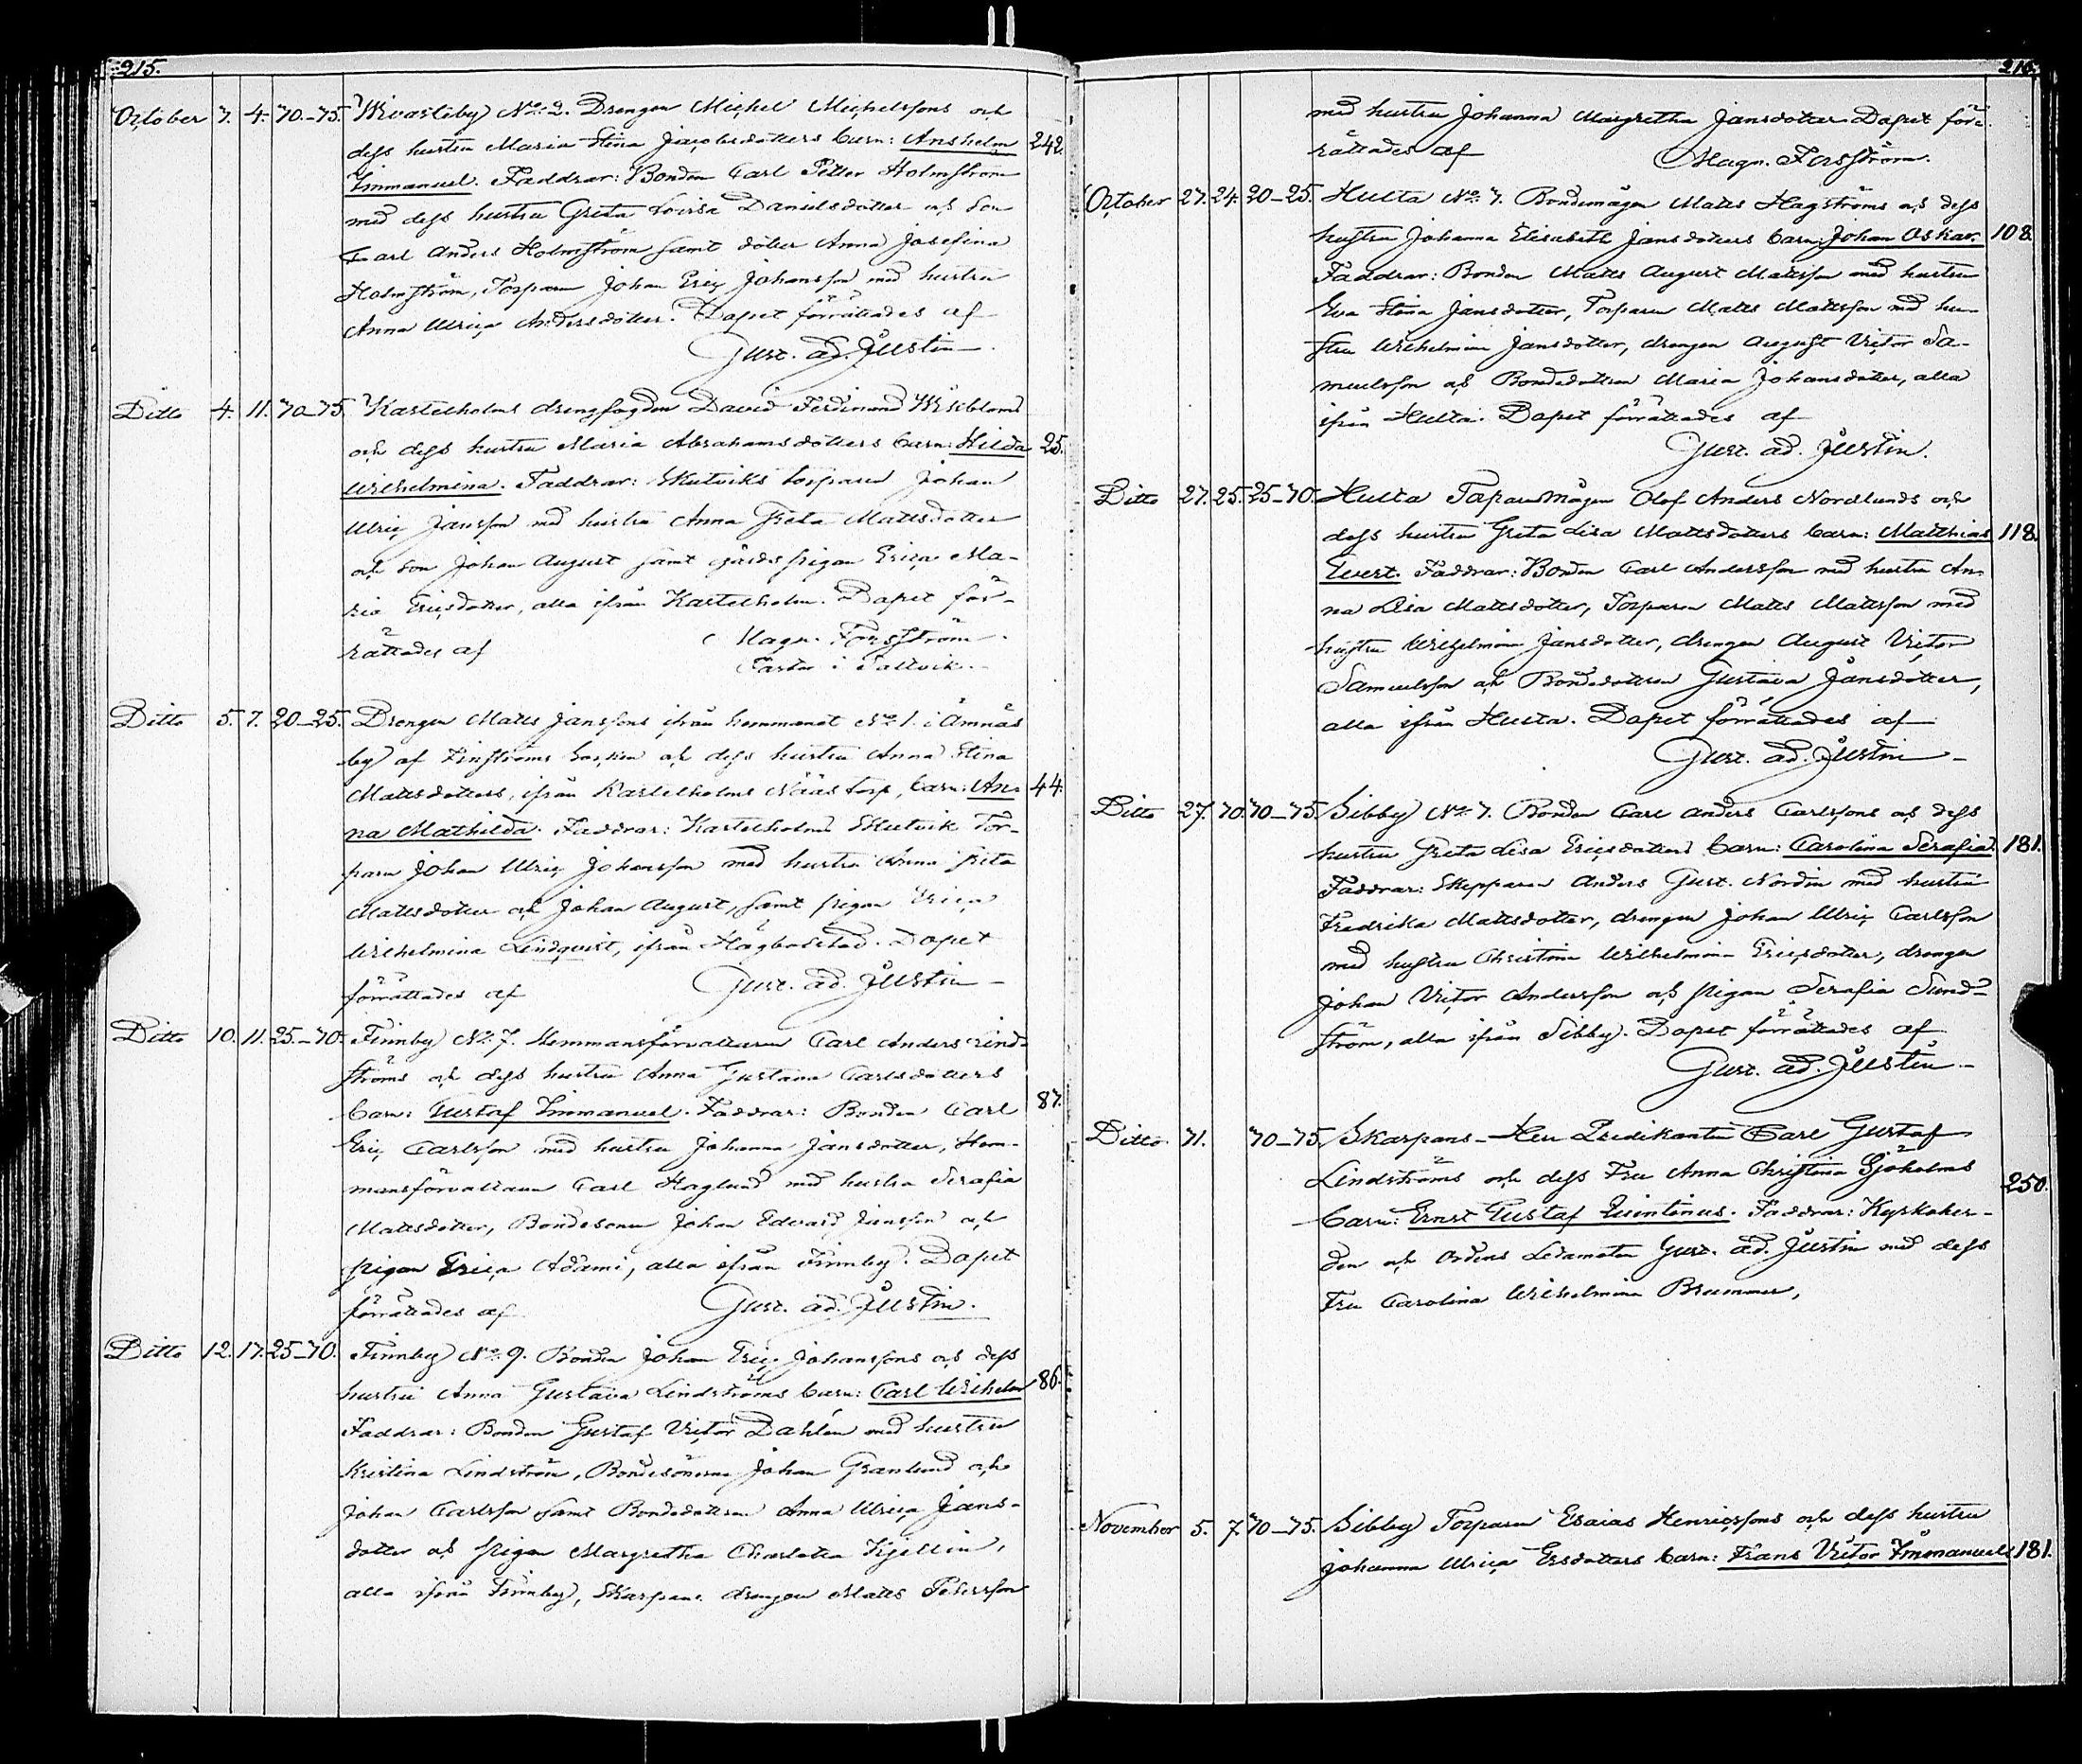 215.
October 7. 4. 70-75. Kivarteby No 2. Drengen Michel Michelssons och
dess hustru Maria Stina Jacobsdotters barn: Anshelm 242.
Immanuel. Faddrar: Bonden Carl Petter Holmström
med dess hustru Greta Lovisa Danielsdotter och Son
Carl Anders Holmström samt dotter Anna Josefina
Holmström, Torparen Johan Eric Johansson med hustru
Anna Ulrica Andersdotter. Dopet förrättades af
Gust. ad. Justin
Ditto 4. 11. 70-75. Kastelholms drengfogden David Ferdinand Wikbloms
och dess hustru Maria Abrahamsdotters barn: Hilda 25.
Wilhelmina. Faddrar: Skutviks torparen Johan
Ulric Jansson med hustru Anna Greta Mattsdotter
och son Johan August samt gårds pigan Erica Ma-
ria Ericsdotter, alla ifrån Kastelholm. Dopet för-
rättades af Magn. Forsström
Pastor i Saltvik.
Ditto 5. 7. 20-25. Drengen Matts Janssons ifrån hemmanet No 1. i Ämnäs
by af Finströms Socken och dess hustru Anna Stina
Mattsdotters, ifrån Kastelholms Näås torp, barn: An- 44.
na Mathilda. Faddrar: Kastelholms Skutvik Tor-
paren Johan Ulric Johansson med hustru Anna Greta
Mattsdotter och Johan August, samt pigan Erica
Wilhelmina Lindqvist, ifrån Högbolstad. Dopet
förrättades af Gust. ad. Justin
Ditto 10. 11. 25-70. Finnby No 7. Hemmansförvaltaren Carl Anders Lind-
ströms och dess hustru Anna Gustava Carlsdotters
barn: Gustaf Immanuel. Faddrar: Bonden Carl 87.
Eric Carlsson med hustru Johanna Jansdotter, Hem-
mansförvaltaren Carl Haglund med hustru Serafia
Mattsdotter, Bondesonen Johan Edvard Jansson och
pigan Erica Adami, alla ifrån Finnby. Dopet
förrättades af Gust. ad. Justin.
Ditto 12. 17. 25-70. Finnby No 9. Bonden Johan Eric Johanssons och dess
hustru Anna Gustava Lindströms barn: Carl Wilhelm 86.
Faddrar: Bonden Gustaf Victor Dahlén med hustru
Kristina Lindström, Bondesönerna Johan Granlund och
Johan Carlsson samt Bondedottren Anna Ulrica Jans-
dotter och pigan Margretha Charlotta Kjellin,
alla ifrån Finnby, Skarpans drengen Matts Petersson
216.
med hustru Johanna Margretha Jansdotter. Dopet för-
rättades af Magn. Forsström.
October 27. 24. 20-25. Hulta No 7. Bondemågen Matts Hagströms och dess
hustru Johanna Elisabeth Jansdotters barn: Johan Oskar. 108.
Faddrar: Bonden Matts August Mattsson med hustru
Eva Stina Jansdotter, Torparen Matts Mattsson med hu-
stru Wilhelmina Jansdotter, drengen August Victor Sa-
muelsson och Bondedottren Maria Johansdotter, alla
ifrån Hulta. Dopet förrättades af
Gust. ad. Justin.
Ditto 27. 25. 25-70. Hulta Torparemågen Olof Anders Nordlunds och
dess hustru Greta Lisa Mattsdotters barn: Matthias 118.
Evert. Faddrar: Bonden Carl Andersson med hustru An-
na Lisa Mattsdotter, Torparen Matts Mattsson med
hustru Wilhelmina Jansdotter, drengen August Victor
Samuelsson och Bondedottren Gustava Jansdotter,
alla ifrån Hulta. Dopet förrättades af
Gust. ad. Justin
Ditto 27. 70. 70-75. Sibby No 7. Bonden Carl Anders Carlssons och dess
hustru Greta Lisa Ericsdotters barn: Carolina Serafia. 181.
Faddrar: Skepparen Anders Gust. Nordin med hustru
Fredrika Mattsdotter, drengen Johan Ulric Carlsson
med hustru Christina Wilhelmina Ericsdotter, drengen
Johan Victor Andersson och pigan Serafia Sund-
ström, alla ifrån Sibby. Dopet förrättades af
Gust. ad. Justin
Ditto 71. 70-75. Skarpans Herr Predikanten Carl Gustaf
Lindströms och dess Fru Anna Christina Sjöholms 250.
barn: Ernst Gustaf Quintinus. Faddrar: Kyrkoher-
den och Ordens Ledamoten Gust. ad. Justin med dess
Fru Carolina Wilhelmina Brummer,
November 5. 7. 70-75. Sibby Torparen Esaias Henricssons och dess hustru
Johanna Ulrica Ersdotters barn: Frans Victor Immanuel 181.